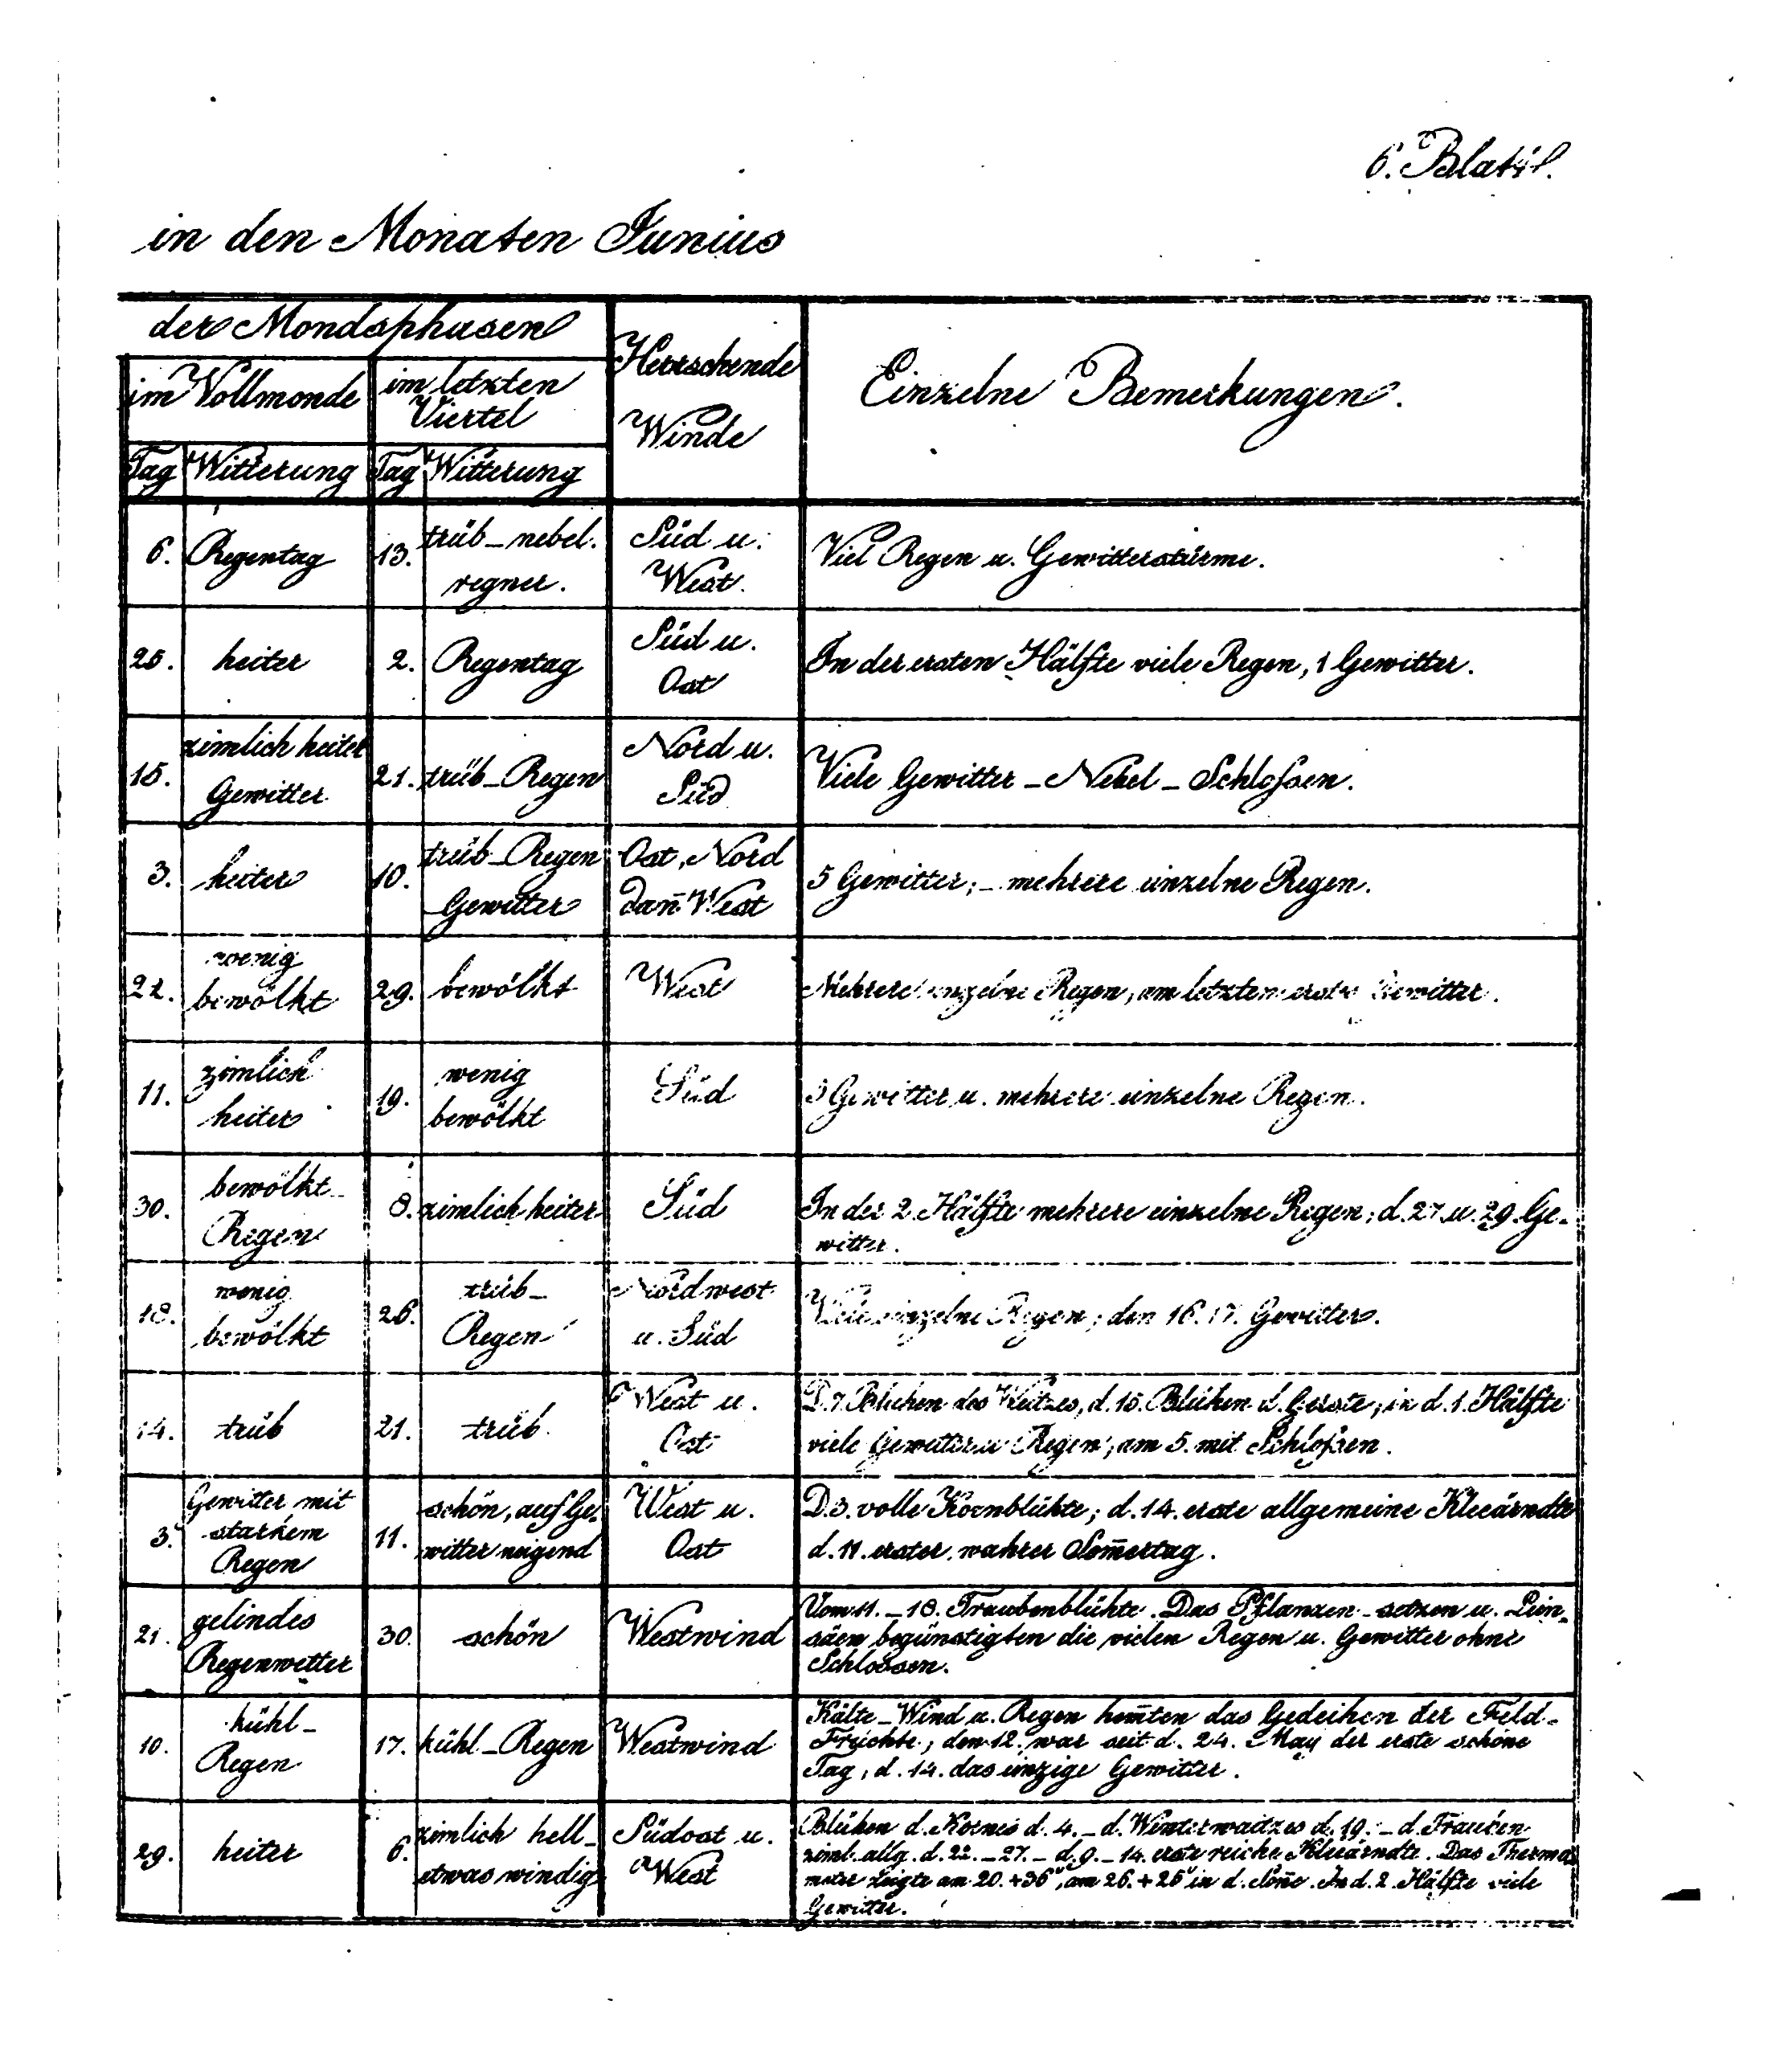 6. Blatt.
in den Monaten Junius
der Mondsphasen
Herrschende
Winde
Einzelne Bemerkungen.
im Vollmonde
im letzten
Viertel
Tag Witterung Tag Witterung
6. Regentag 13. trüb - nebel. regner. Süd u. West. Viel Regen u. Gewitterstürme.
25. heiter 2. Regentag Süd u. Ost In der ersten Hälfte viele Regen, 1 Gewitter.
15. zimlich heiter Gewitter 21. trüb - Regen Nord u. Süd Viele Gewitter - Nebel - Schloßen.
3. heiter 10. trüb - Regen Gewitter Ost, Nord dan̄ West 5 Gewitter; - mehrere einzelne Regen.
22. wenig bewölkt 29. bewölkt West Mehrere einzelne Regen, am letzten erstes Gewitter.
11. zimlich heiter 19. wenig bewölkt Süd Gewitter u. mehrere einzelne Regen.
30. bewölkt - Regen 8. zimlich heiter Süd In der 2. Hälfte mehrere einzelne Regen; d. 27. u. 29. Ge-
witter.
18. wenig bewölkt 26. trüb - Regen Nordwest u. Süd Viele einzelne Regen; den 16. 17. Gewitter.
14. trüb 21. trüb. West u. Ost D. 7. Blühen des Weitzes, d. 15. Blühen d. Gerste; in d. 1. Hälfte
viele Gewitter u. Regen, am 5. mit Schloßen.
3. Gewitter mit starkem Regen 11. schön, auf Ge- witter neigend West u. Ost D. 3. volle Kornblühte; d. 14. erste allgemeine Kleeärndte
d. 11. erster wahrer Som̄ertag.
21. gelindes Regenwetter 30. schön Westwind Vom 11. - 18. Traubenblühte. Das Pflanzen - setzen u. Lein-
säen begünstigten die vielen Regen u. Gewitter ohne
Schlossen.
10. kühl - Regen 17. kühl - Regen Westwind Kälte - Wind u. Regen hem̄ten das Gedeihen der Feld-
Früchte; den 12. war seit d. 24. May der erste schöne
Tag, d. 14. das einzige Gewitter.
29. heiter 6. zimlich hell - etwas windig Südost u. West Blühen d. Kornes d. 4. - d. Winterwaitzes d. 19. - d. Trauben
ziml. allg. d. 22. - 27. - d. 9. - 14. erste reiche Kleeärndte. Das Thermo-
meter zeigte am 20. +36°, am 26. +26° in d. Son̄e. In d. 2. Hälfte viele
Gewitter.